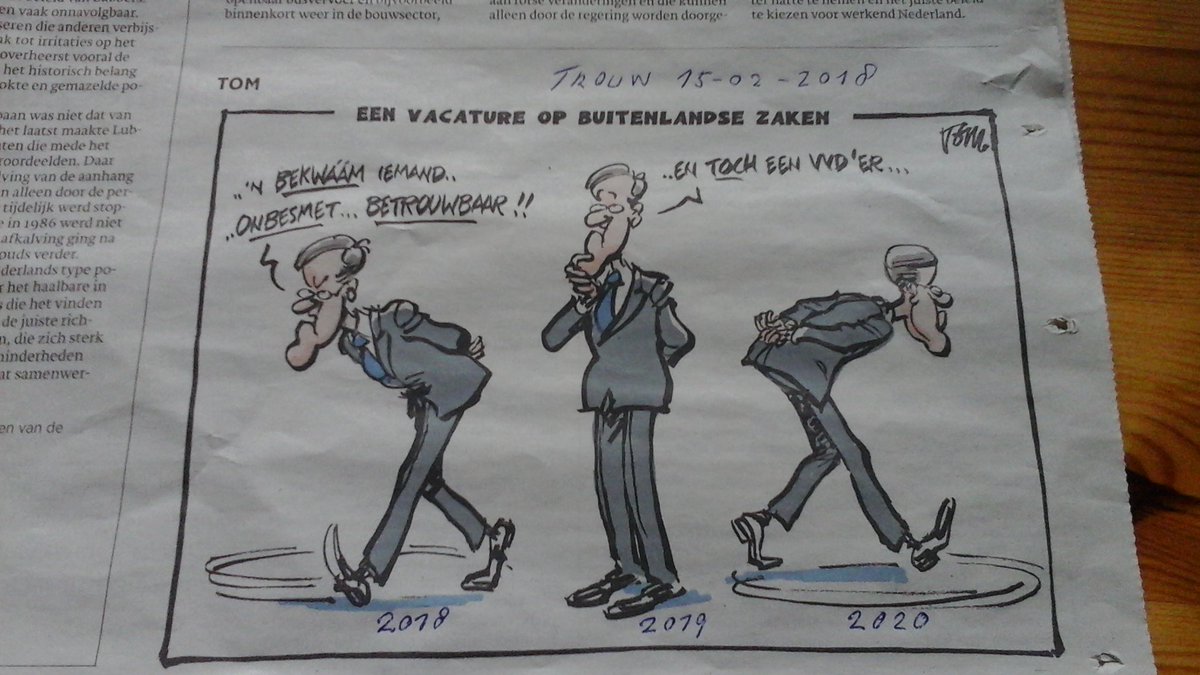 en vaak onnavolgbaar.
seren die anderen verbijs-
ak tot irritaties op het
overheerst vooral de
het historisch belang
okte en gemazelde po-
baan was niet dat van
het laatst maakte Lub-
nten die mede het
roordeelden. Daar
lving van de aanhang
n alleen door de per-
tijdelijk werd stop-
e in 1986 werd niet
afkalving ging na
ouds verder.
derlands type po-
r het haalbare in
s die het vinden
de juiste rich-
n, die zich sterk
minderheden
at samenwer-
en van de
binnenkort weer in de bouwsector,
alleen door de regering worden doorge-
te kiezen voor werkend Nederland.
TOM
TROUW 15-02-2018
EEN VACATURE OP BUITENLANDSE ZAKEN
TOM.
..'N BEKWÁÁM IEMAND..
..ONBESMET... BETROUWBAAR!!
..EN TOCH EEN VVD'ER...
2018
2019
2020